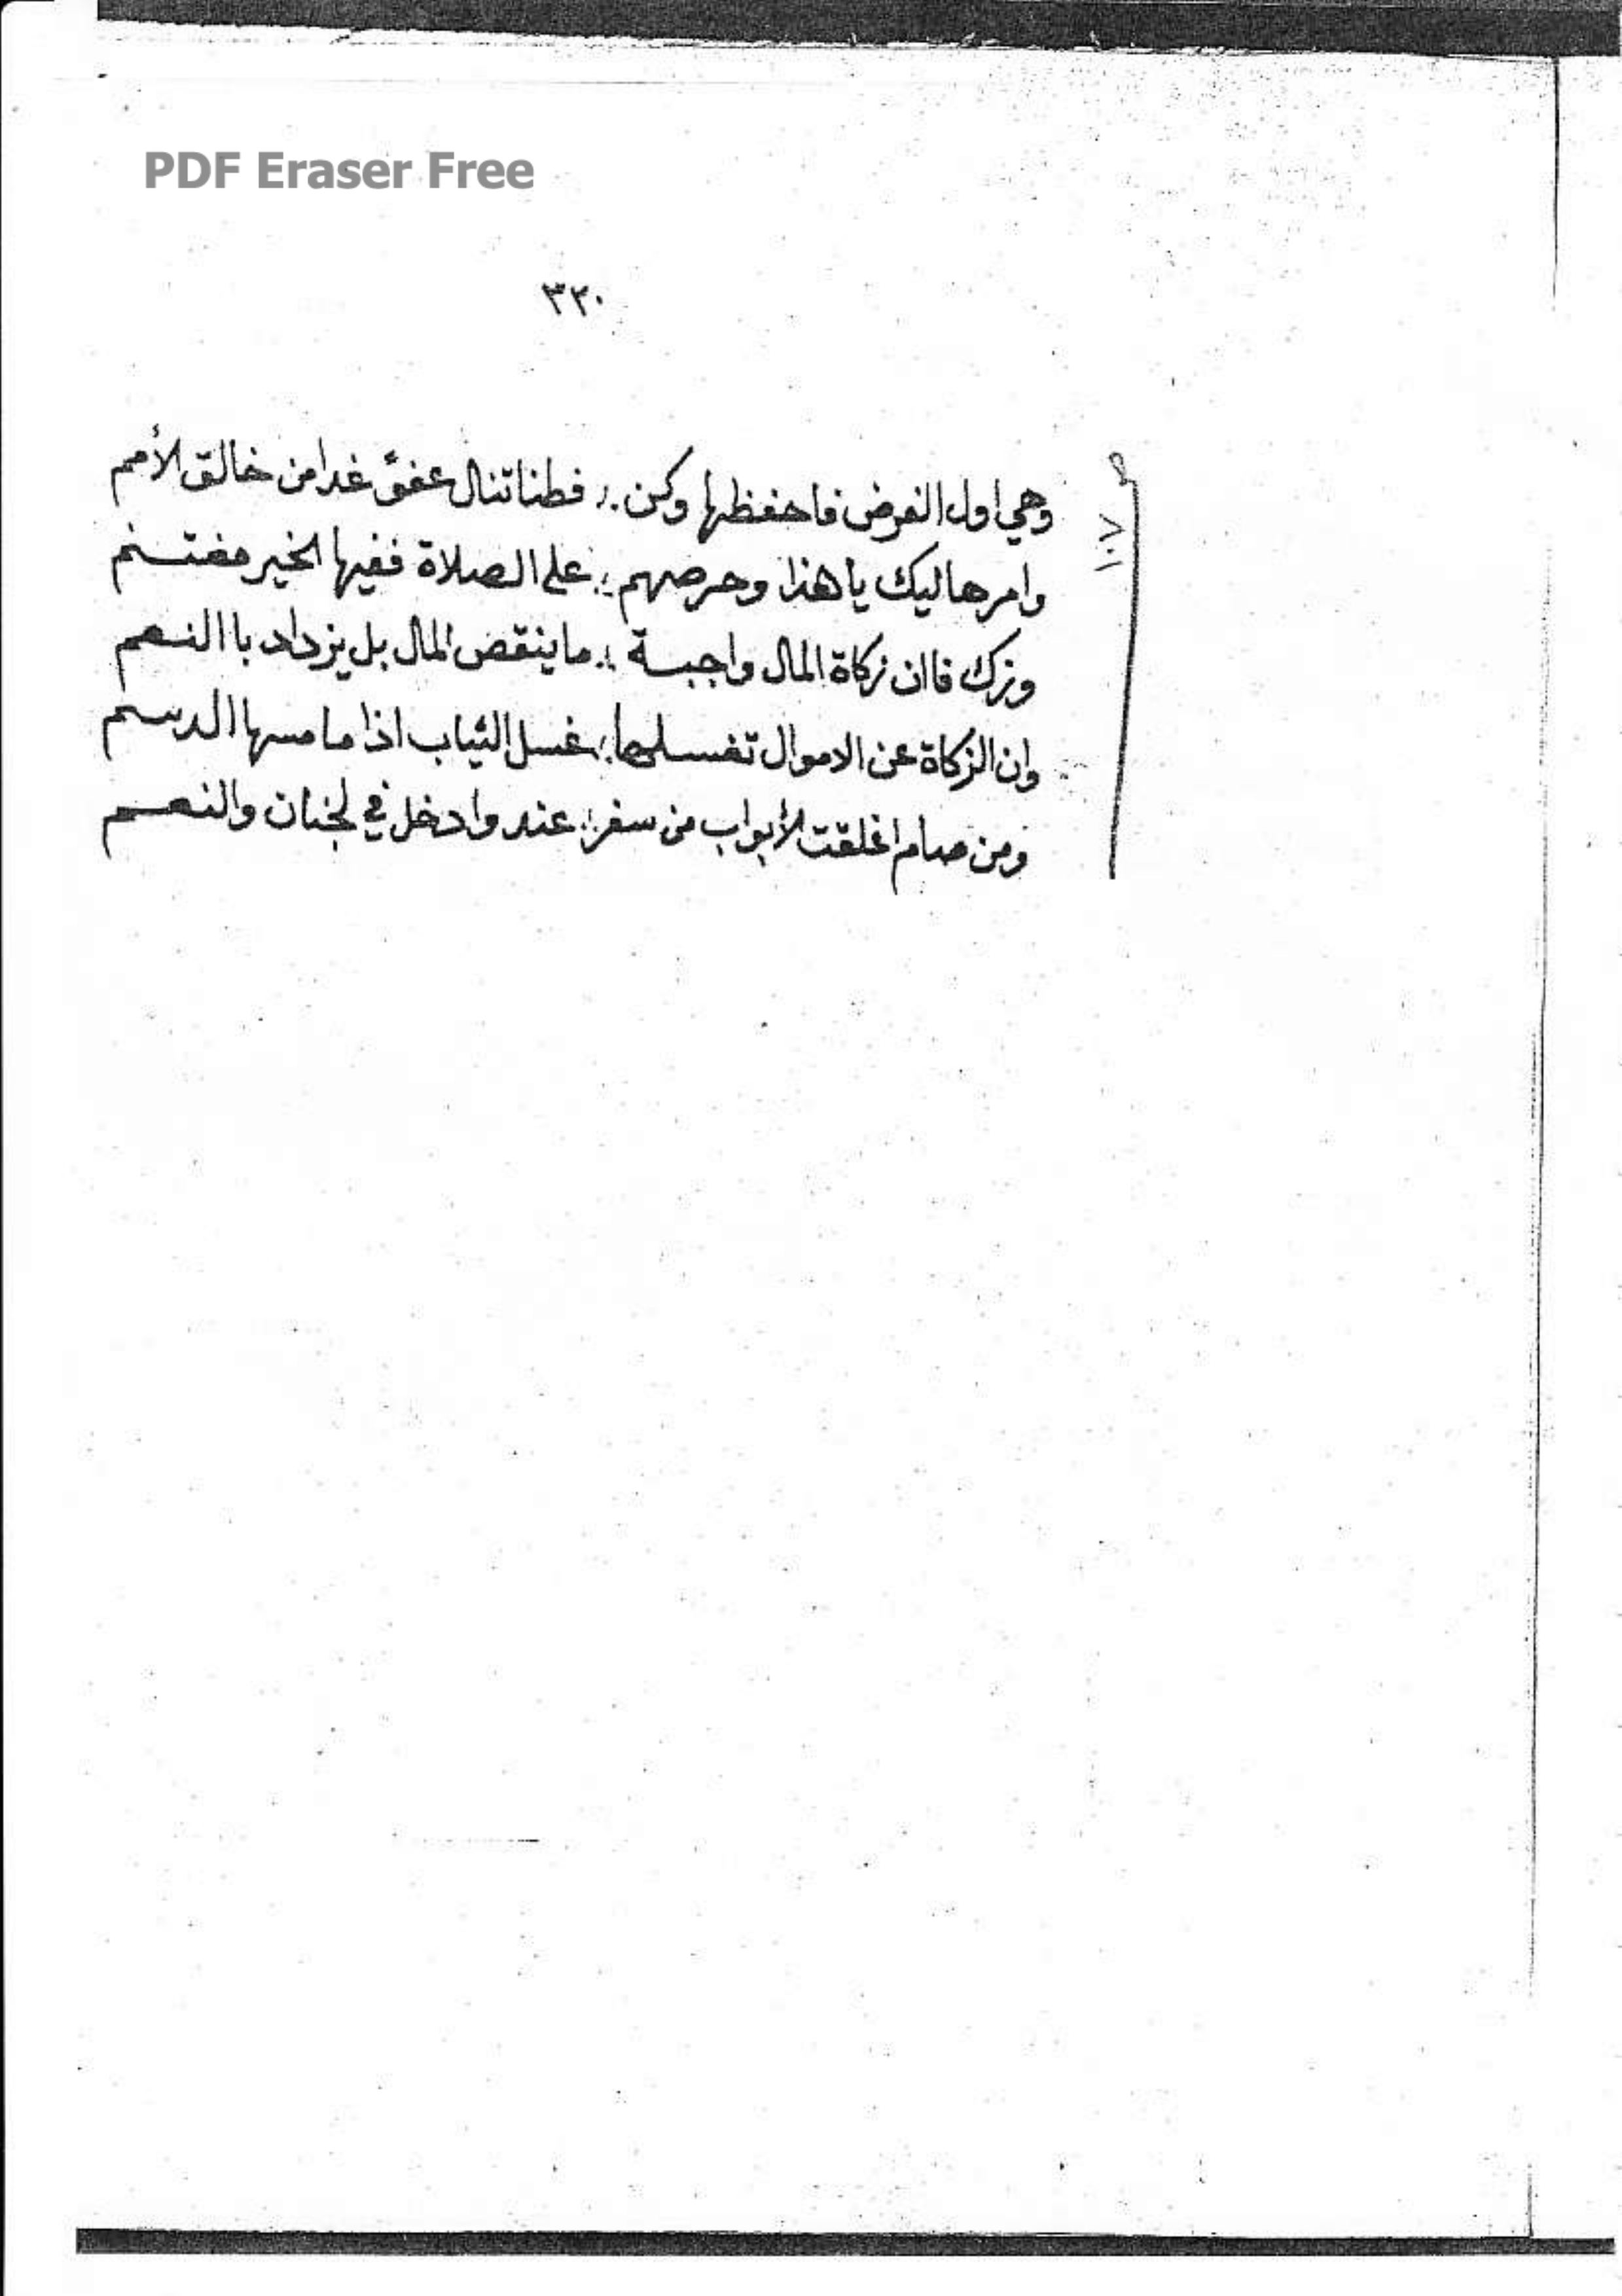 PDF Eraser Free
٣٣٠
وهي اول الفرض فاحفظها وكن ؞ فطنا تنال عفوً غدا من خالق الأمم
وامرهاليك يا هذا وحرصهم ؞ على الصلاة ففيها الخير مغتسنم
وزك فاان زكاة المال واجبسة ؞ ما ينقص المال بل يزداد با النسعم
وان الزكاة عن الاموال تغسسلها ؞ غسل الثياب اذا ما مسها الدسسم
ومن صام اغلقت لأبواب من سقر ؞ عند وادخل في لجنان والنعسم
١٠٧